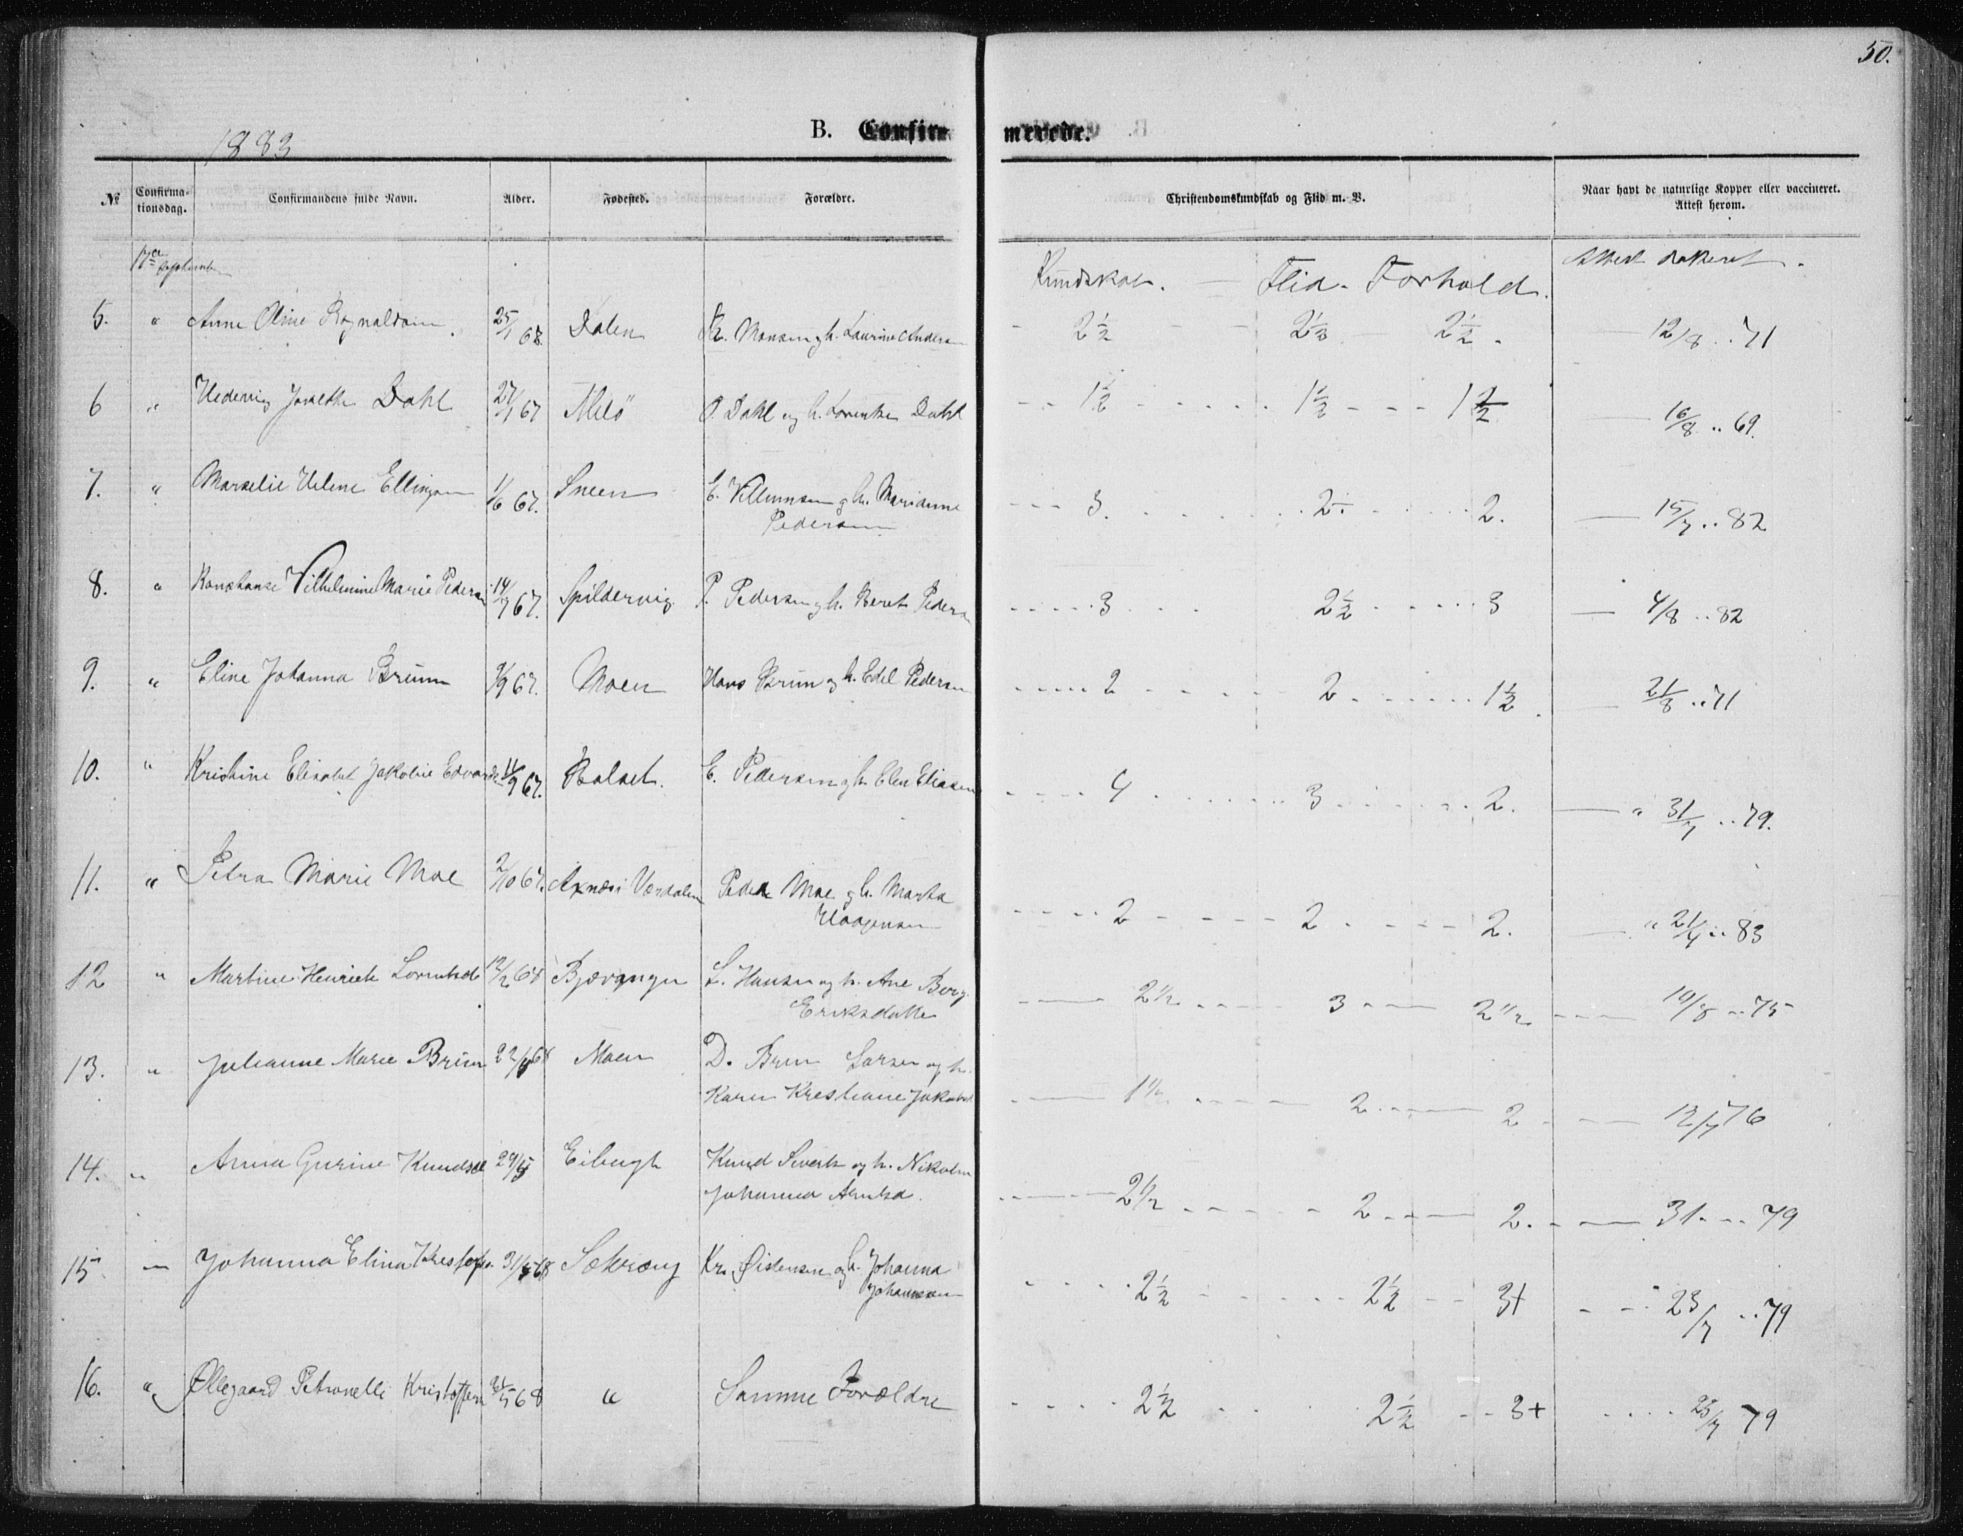 50.
1883
B. Confirmerede.
№ Confirmationsdag. Confirmandens fulde Navn. Alder. Fødested. Forældre. Christendomskundskab og Flid m. V. Naar havt de naturlige Kopper eller vaccineret. Attest herom.
17de September Kundskab. Flid. Forhold. Attest dateret.
5. " Anne Oline 25/1 68 Dalen R. Monsen og h. Laurine Anders 2½ 2½ 2½. 12/8 .. 71
6 " Hedevig Dahl 27/1 67 Melö O. Dahl og h. Lorentze Dahl 1½ 1½ 1½ 16/8 .. 69.
7. " Marselie Helene Ellingsen 1/6 67. Sneen E. Villumsen og h. Marianne
Pedersen 3. 2÷ 2. 15/7 .. 82
8. " Konstanse Vilhelmine Marie Pedersen 14/7 67. Spildervig P. Pedersen og h. Beret Peders 3 2½ 3 4/8 .. 82
9. " Eline Johanna Bruun 9/9 67. Moen Hans Brun og h. Edel Pedersen 2 2 1½. 21/8 .. 71
10. " Kristine Elisabet Jakobine Edvards 11/9 67. Halset. E. Pedersen og h. Elen Eliasen 4 3 2. " 31/7 .. 79.
11. " Petra Marie Moe 2/10 67. Værdalen Peder Moe og h. Marta
Haagensen 2 2 2. " 21/4 .. 83
12 " Martine Henrich Lorntsd 12/2 68 Bjærangen L. Hansen og h. Ane Berg
Eriksdatter 2½ 3 2½ 10/8 .. 75
13. " Julianne Marie Brun 22/ 68 Moen D. Brun Larsen og h.
Karen Krestiane Jakobsd 1½ 2 2 12/7 76
14. " Anna Gurine Knudsd 29/5 Knud Siverts og h. Nikolin
Johanna Arntsd. 2½ 2 2. 31 79
15 " Johanna Elina Krestofs 31/5 68 Kr. Østensen og h. Johanna
Johannesen 2½ 2½ 3+ 23/7 .. 79
16. " Ollegaard Petronelle Kristoffers 31/5 68 " Samme Forældre 2½ 2½ 3+ 23/7 79